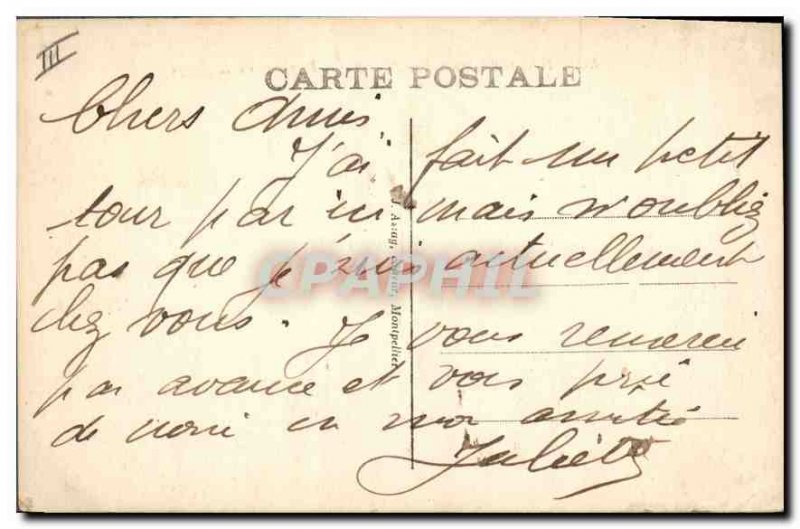 III
CARTE POSTALE
Chers Amis
J'ai fait un petit
tour par ici mais n'oubliez
pas que je suis actuellement
chez vous. Je vous remercie
par avance et vous prie
de croire en mon amitié
Juliette
Montpellier
CPAPHIL